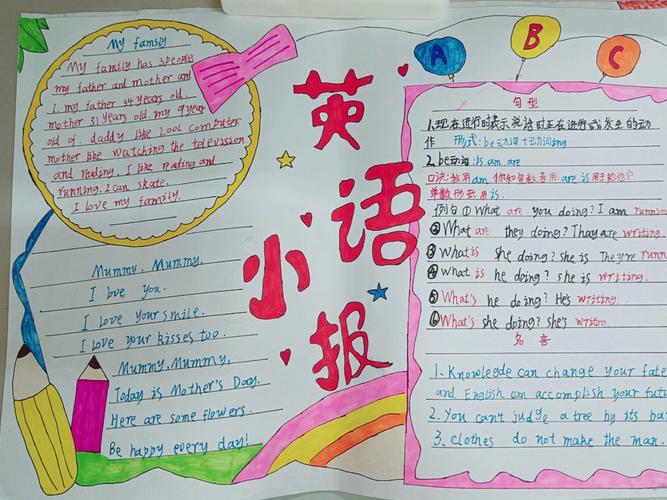 My family
My family has 3 people
my father and mother and
I. my father 34 years old.
mother 31 years old. my 9 year
old of. daddy like Look computer
mother like watching the television
and reading. I like reading and
running. I can skate.
I love my family.
Mummy, Mummy,
I love you.
I love your smile.
I love your kisses too.
Mummy, Mummy,
Today is Mother's Day.
Here are some flowers.
Be happy every day!
英语
小报
A B C
句型
1.现在进行时表示说话时正在进行或发生的动
作 形式:be动词+动词ing
2.be动词:is am are
口诀:我用am 你和复数者用are is用于他她它
单数形式用is.
例句①What are you doing? I am running
②What are they doing? Thay are writing.
③What is she doing? she is They're runn
④What is he doing? she is writing.
⑤What's he doing? He's writing.
⑥What's she doing? she's writing.
名言
1. Knowlegde can change your fate
and English can accomplish your futu
2. You can't judge a tree by its ba
3. clothes do not make the man.